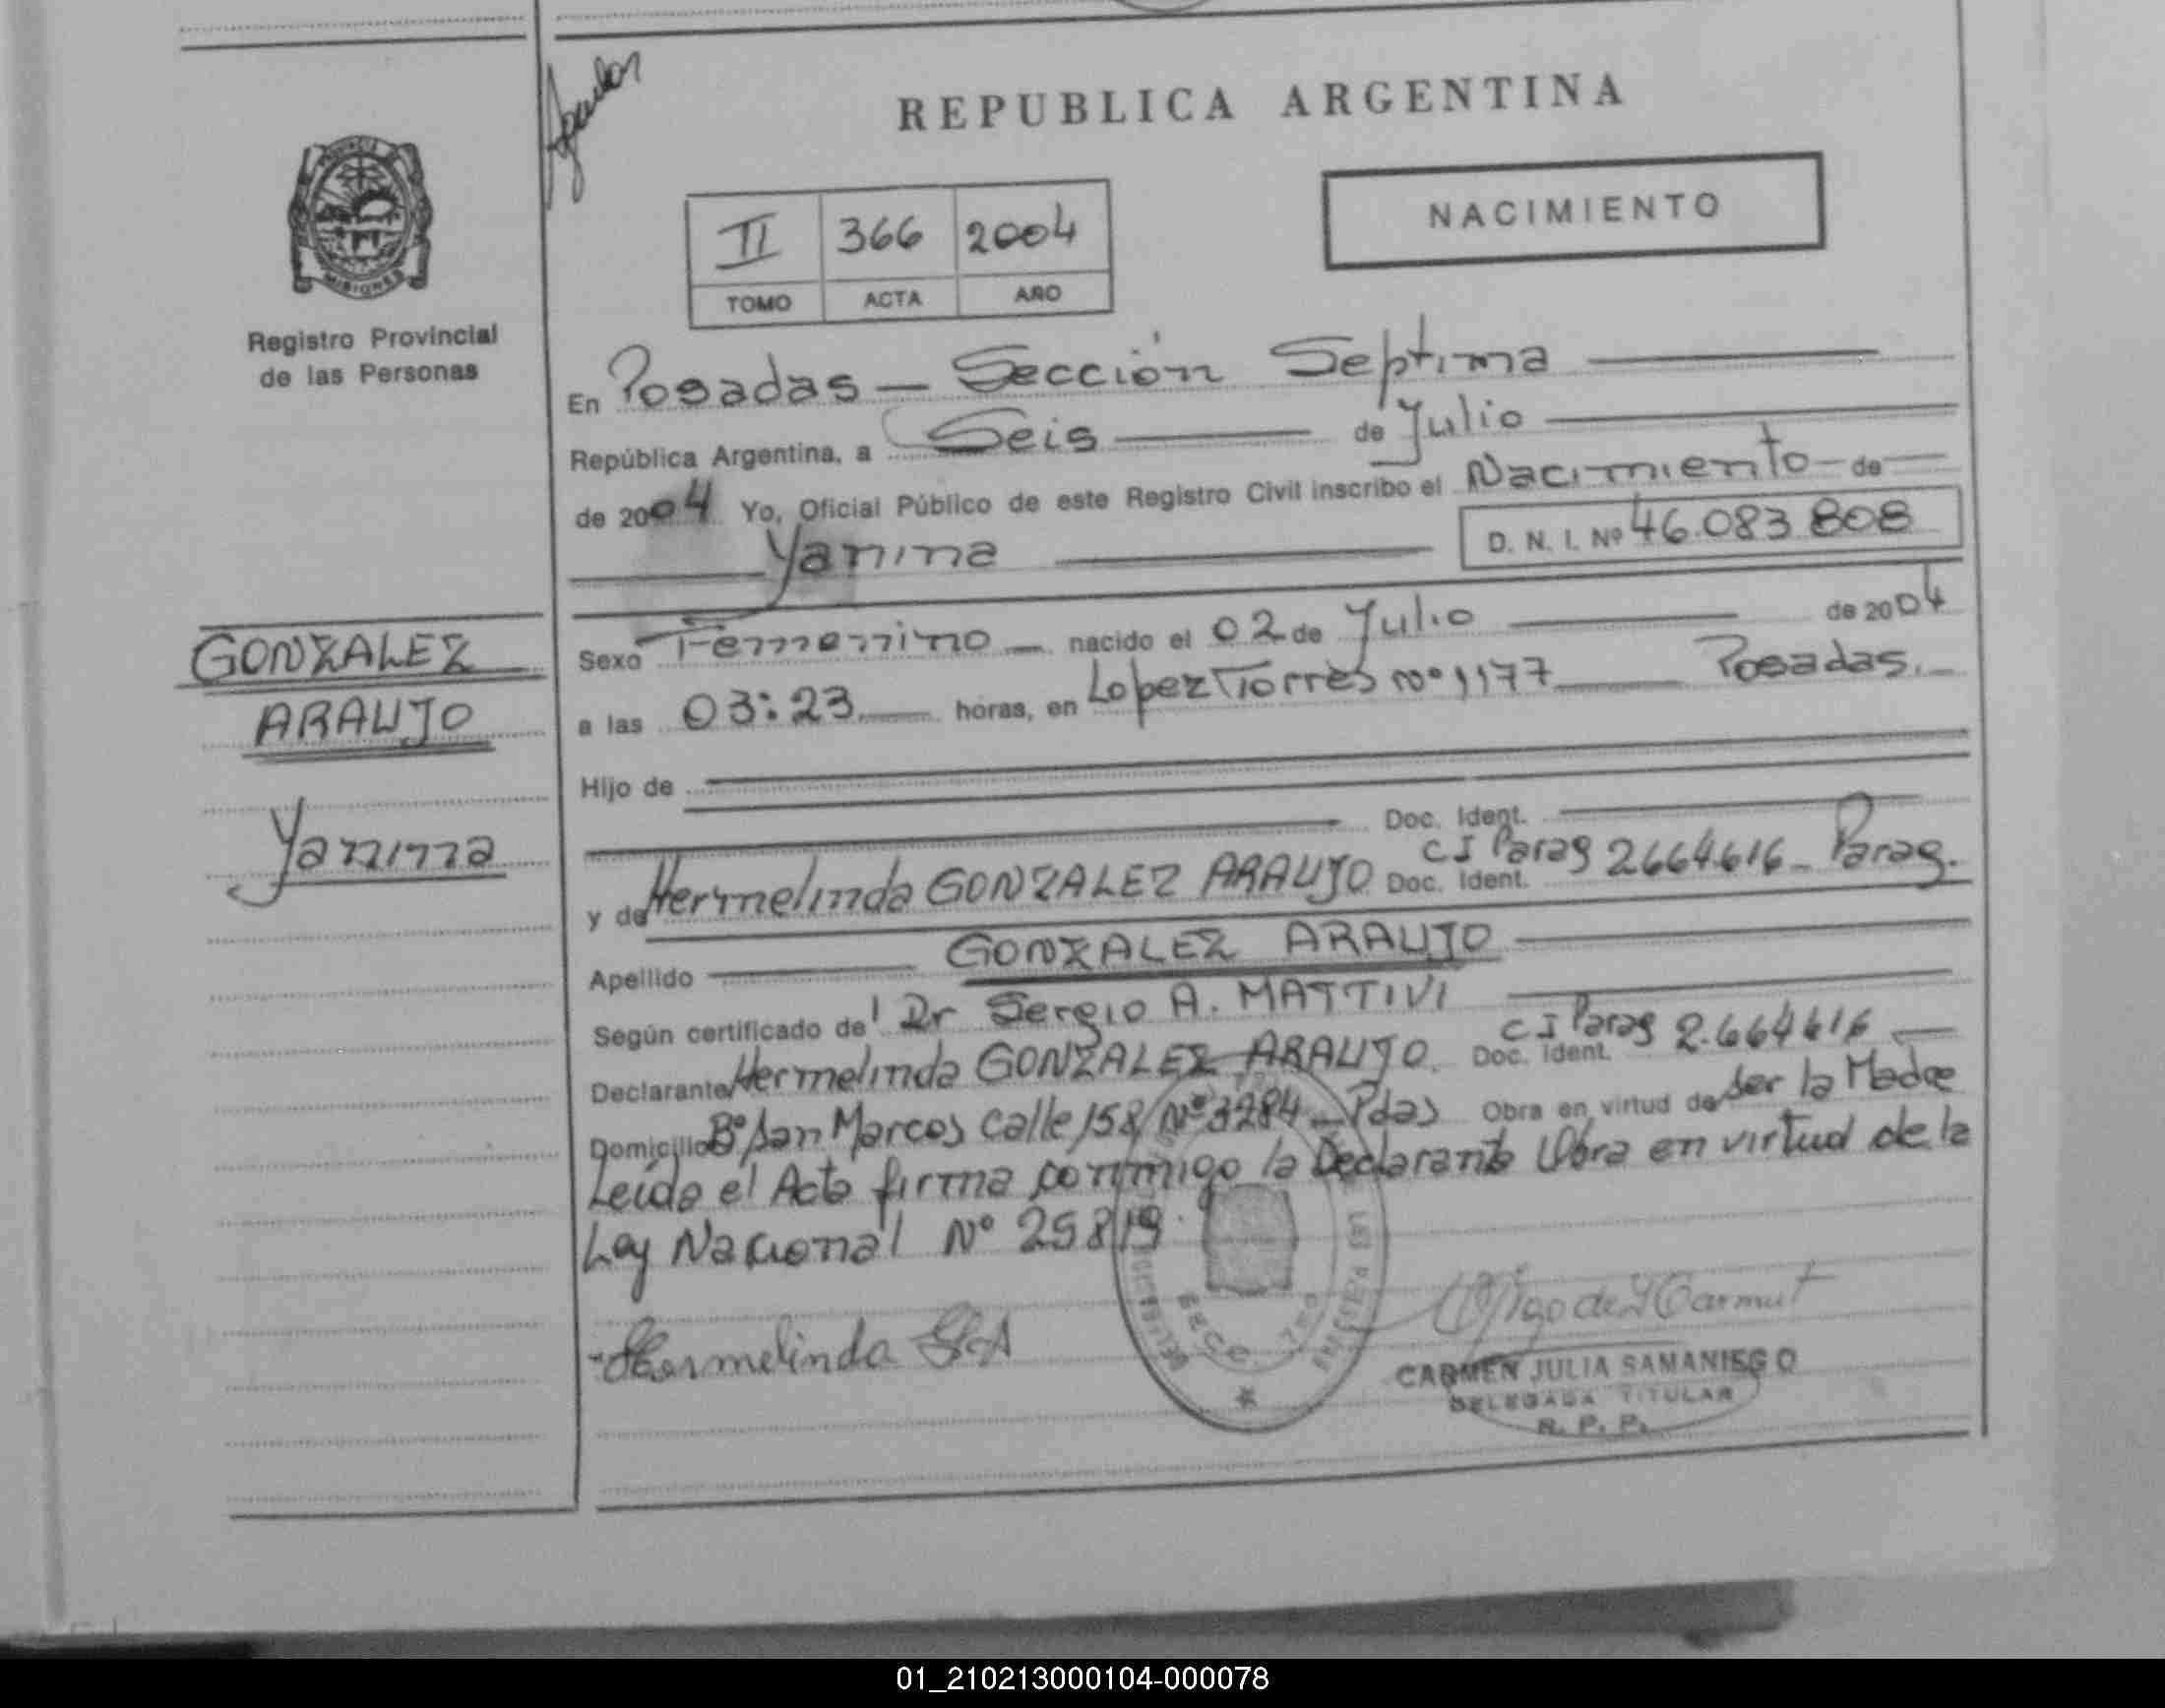 REPUBLICA ARGENTINA
NACIMIENTO
II 366 2004
TOMO ACTA AÑO
PROVINCIA DE
MISIONES
Registro Provincial
de las Personas
En Posadas — Sección Septima
República Argentina, a Seis de Julio
de 2004 Yo, Oficial Público de este Registro Civil inscribo el Nacimiento de
Yanina D. N. I. Nº 46.083 808
GONZALEZ
ARAUJO
Yanina
Sexo Femenino nacido el 02 de Julio de 2004
a las 03:23 horas, en Lopez Torres nº 1177 Posadas.
Hijo de
Doc. Ident.
y de Hermelinda GONZALEZ ARAUJO Doc. Ident. CI Parag 2664616 - Parag.
Apellido GONZALEZ ARAUJO
Según certificado del Dr Sergio A. MATTIVI
Declarante Hermelinda GONZALEZ ARAUJO. Doc. Ident. CI Parag 2.664616
Domicilio Bº San Marcos calle 158 Nº 3284 - Pdas Obra en virtud de ser la Madre
Leida el Acta firma conmigo la Declarante Obra en virtud de la
Ley Nacional Nº 25819.
Hermelinda G.A
CARMEN JULIA SAMANIEGO
DELEGADA TITULAR
R. P. P.
01_210213000104-000078